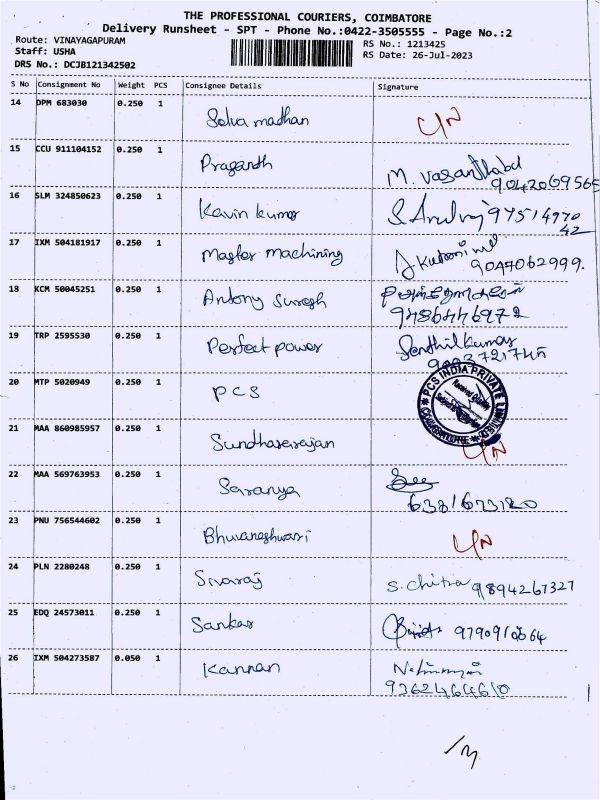 THE PROFESSIONAL COURIERS, COIMBATORE
Delivery Runsheet - SPT - Phone No.:0422-3505555 - Page No.:2
Route: VINAYAGAPURAM
Staff: USHA
DRS No.: DCJB121342502
RS No.: 1213425
RS Date: 26-Jul-2023
S No Consignment No Weight PCS Consignee Details Signature
14 DPM 683030 0.250 1 Selva madhan
15 CCU 911104152 0.250 1 Prasanth M.
16 SLM 324850623 0.250 1 Kavin kumar
17 IXM 504181917 0.250 1 Master machining
9047062999.
18 KCM 50045251 0.250 1 Antony Suresh
9486446972
19 TRP 2595530 0.250 1 Perfect power Senthilkumar
20 MTP 5020949 0.250 1 PCS
PCS INDIA PRIVATE LIMITED
COIMBATORE
21 MAA 860985957 0.250 1 Sundhararajan
22 MAA 569763953 0.250 1 Saranya
6381673120
23 PNU 756544602 0.250 1 Bhuvaneshwari
24 PLN 2280248 0.250 1 Sivaraj S. Chitra 9894267327
25 EDQ 24573011 0.250 1 Sankar
26 IXM 504273587 0.050 1 Kannan
9362464610